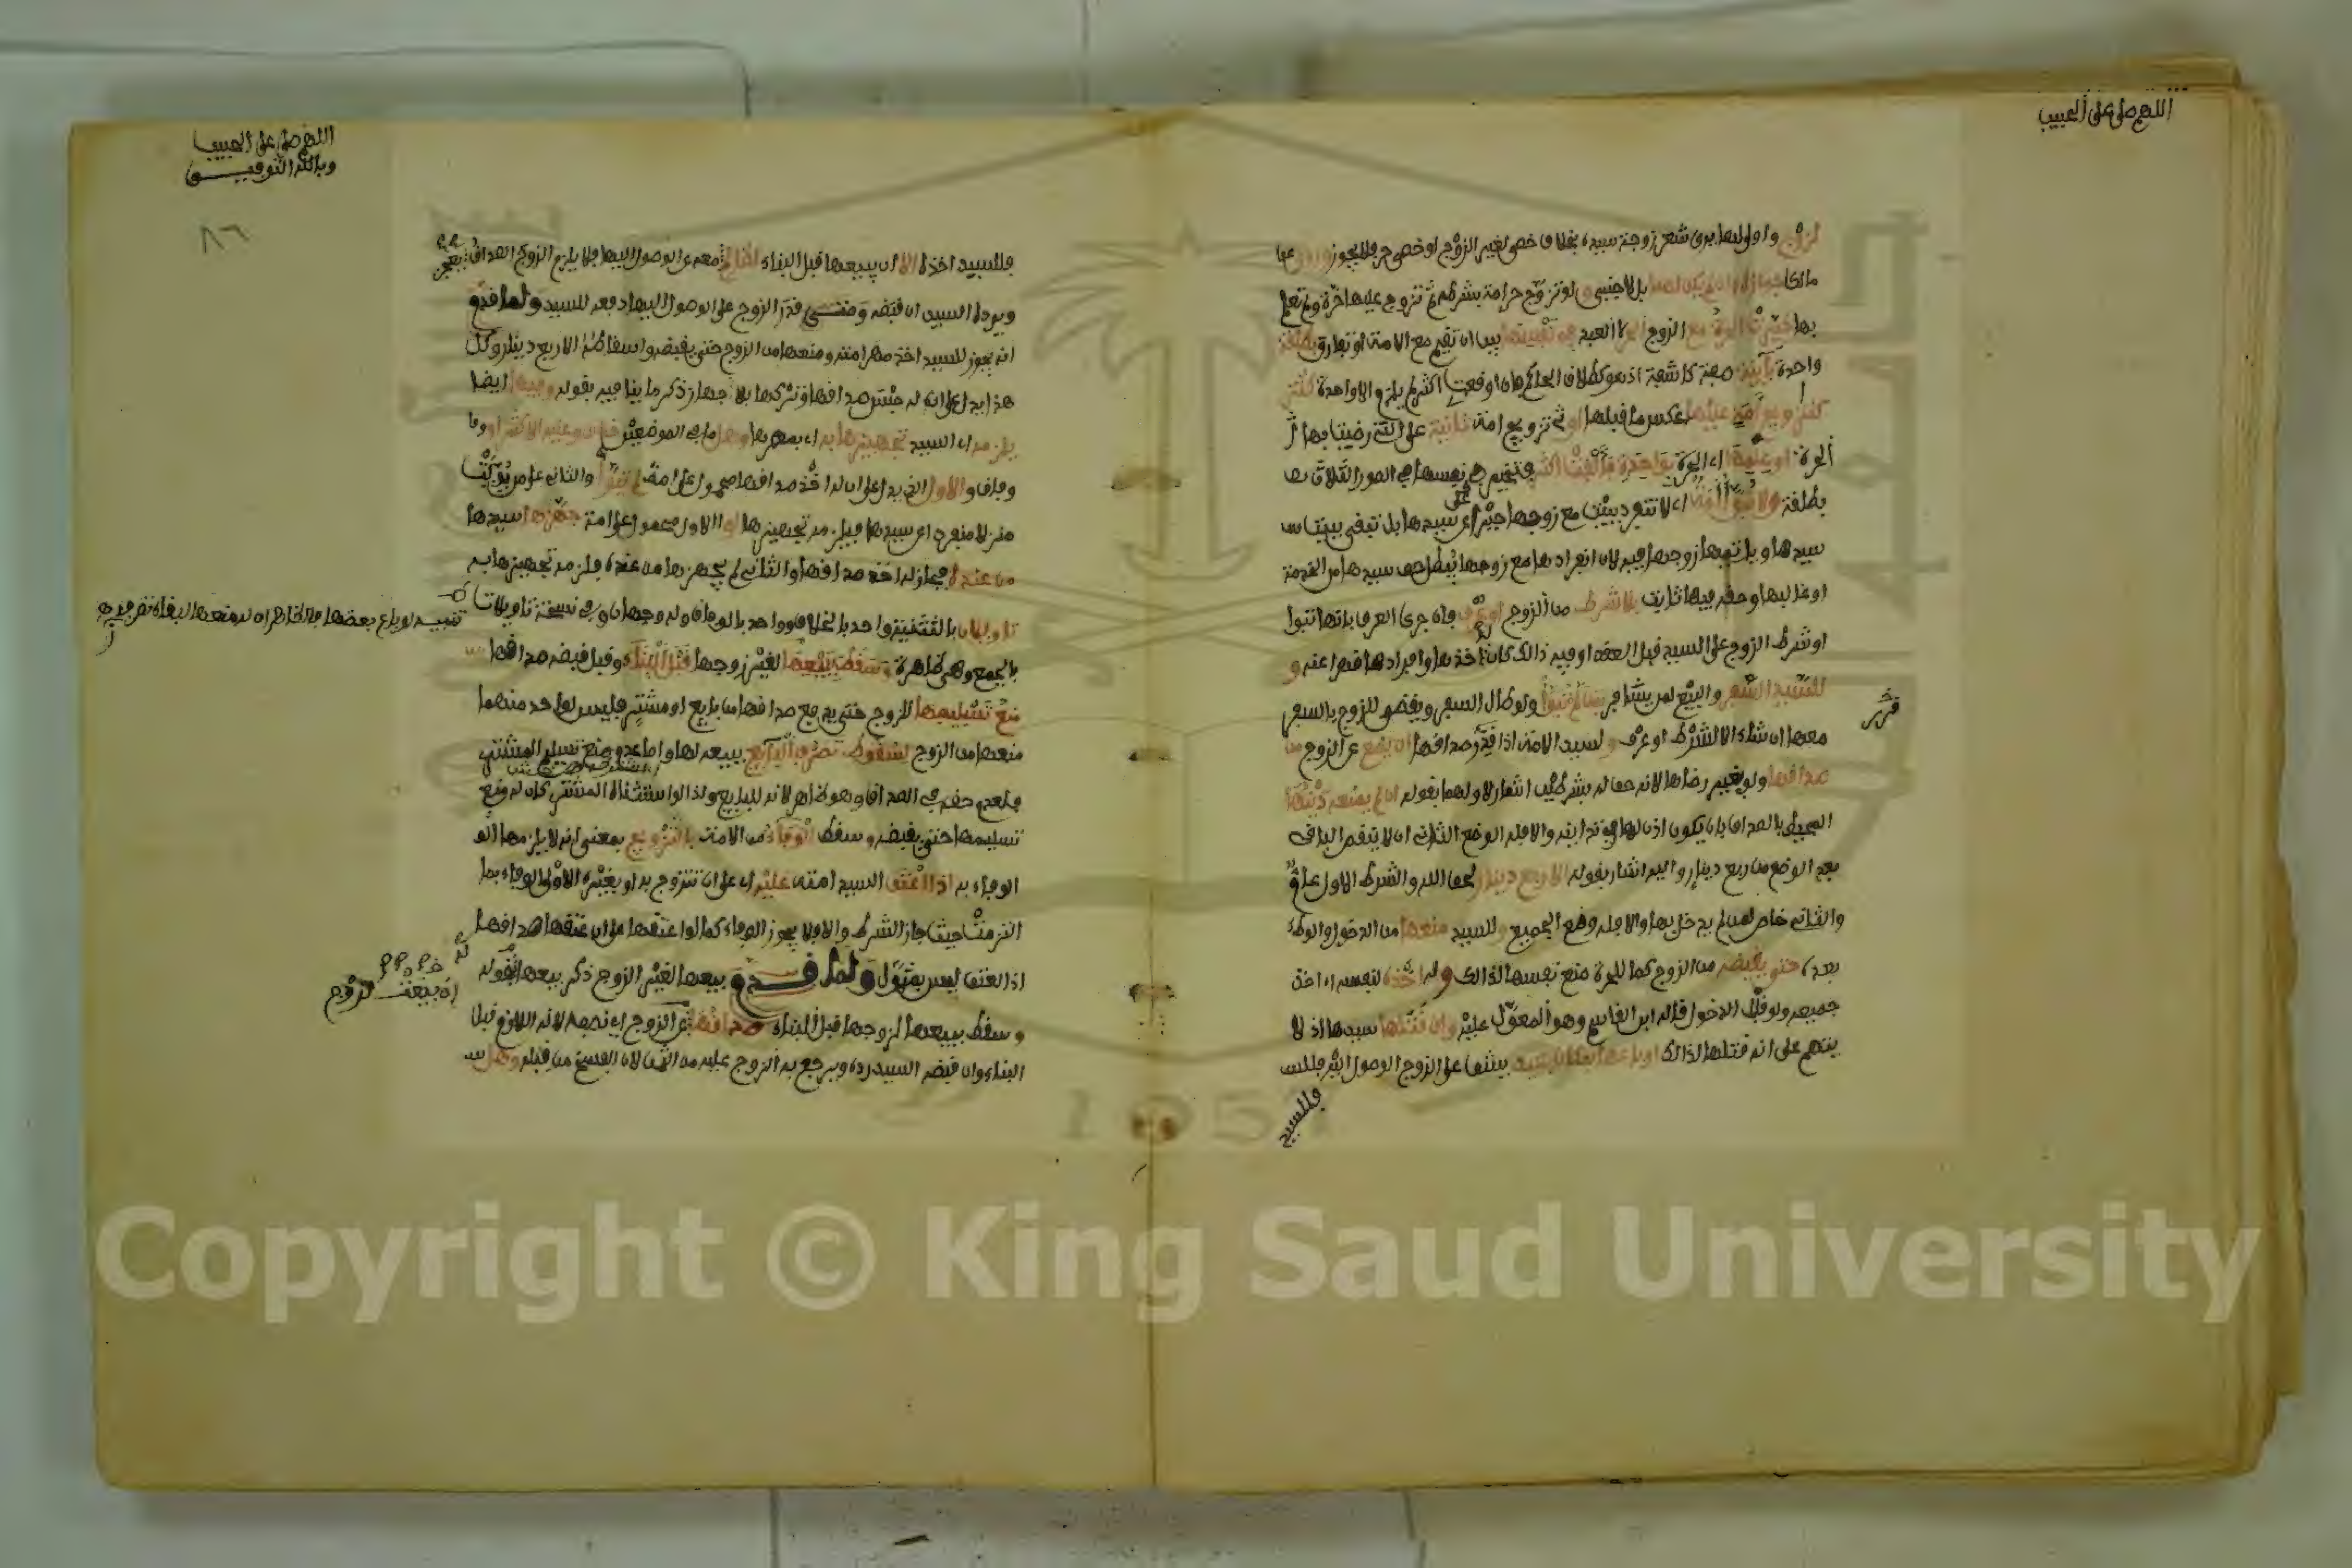 اللهم صل على الحبيب
لزوج واولى لها يرى شعر زوجة سيده بخلاف خصى لغير الزوج او خصى حر فلا يجوز وروى عن
مالك جوازه وان لم يكن لهما بل لاجنبى ولو تزوج حرامة بشرطه ثم تزوج عليها حرة ولم تعلم
بها خيرت الحرة مع الزوج الحر لا العبد فى نفسها بين ان تقيم مع الامة او تفارق بطلقة
واحدة باينة صفة كاشفة اذ هو كطلاق الحاكم فان اوقعت اكثر لم يلزم الا واحدة كتز
كتزويج امة عليها عكس ما قبلها او تزويج امة ثانية على التى رضيت بها
الحرة او علمها اى الحرة بواحدة فالفت اكثر فتخير فى نفسها فى الصور الثلاث بط
بطلقة ولا تبوأ امة اى لا تنفرد ببيت مع زوجها جبرا على سيدها بل تبقى ببيت س
سيدها وياتيها زوجها فيه لان انفرادها مع زوجها يبطل حق سيدها من الخدمة
او غالبها وحقه فيها ثابت بلا شرط من الزوج او عرف فان جرى العرف بانها تبوأ
او شرط الزوج على السيد قبل العقد او فيه ذالك كان له اخذها وافرادها قهرا عنه و
للسيد السفر والبيع لمن يشاء فر بمن لم تبوأ ولو طال السفر ويقضى للزوج بالسفر
معها ان شاء الا لشرط او عرف ولسيد الامة اذا قدر صداقها ان يضع عن الزوج من
صداقها ولو بغير رضاها لانه حق له بشرطين اشار لاولهما بقوله ان لم يمنعه دينها
المحيط بالصداق بان يكون اذن لها فى تداينه والا فله الوضع الثانى ان لا ينقص الباقى
بعد الوضع من ربع دينار واليه اشار بقوله الا ربع دينار لحق الله والشرط الاول عام
والثانى خاص لمن لم يدخل بها والا فله وضع الجميع وللسيد منعها من الدخول والوطء
بعده حتى يقبضه من الزوج كما للحرة منع نفسها لذالك وله اخذه لنفسه اى اخذ
جميعه ولو قبل الدخول قاله ابن القاسم وهو المعول عليه وان قتلها سيدها اذ لا
يتهم على انه قتلها لذالك او باعها بمكان بعيد يشق على الزوج الوصول اليه فللس
فللسيد
اللهم صل على الحبيب
وبالله التوفيق
٨٦
فللسيد اخذه الا ان يبيعها قبل البناء لظالم معه عن الوصول اليها فلا يلزم الزوج الصداق
ويرده السيد ان قبضه ومتى قدر الزوج على الوصول اليها دفعه للسيد ولما قدم
انه يجوز للسيد اخذ مهر امته ومنعها من الزوج حتى يقبضه واسقاطه الا ربع دينار وكل
هذا يدل على ان له حبس صداقها وتركها بلا جهاز ذكر ما ينافيه بقوله وفيها ايضا
يلزمه اى السيد تجهيزها به اى بمهرها وهل ما فى الموضعين خلاف وعليه الاكثر او وفا
وفاق والاول الذى يدل على ان له اخذ صداقها محمول على امة لم تبوأ والثانى على من بوئت
منزلا منفردا عن سيدها فيلزمه تجهيزها او الاول محمول على امة جهزها سيدها
من عنده فجاز له اخذ صداقها والثانى لم يجهزها من عنده فلزمه تجهيزها به
تاويلان بالتثنية واحد بالخلاف وواحد بالوفاق وله وجهان وفى نسخة تاويلات
بالجمع وهى ظاهرة وسقط ببيعها لغير زوجها قبل البناء وقبل قبضه صداقها
منع تسليمها للزوج حتى يدفع صداقها من بايع او مشتر فليس لواحد منهما
منعها من الزوج لسقوط تصرف البايع ببيعه لها واما عدم منع تسليم المشترى
فلعدم حقه فى الصداق وهو ظاهر لانه للبايع ولذا لو استثناه المشترى كان له منع
تسليمها حتى يقبضه وسقط الوفاء من الامة بالتزويج بمعنى انه لا يلزمها الو
الوفاء به اذا اعتق السيد امته عليه اى على ان تتزوج به او بغيره لا الوفاء بما
التزمت حيث جاز الشرط والا فلا يجوز الوفاء كما لو اعتقها على ان عتقها صداقها
اذ العتق ليس بمتمول ولما قدم بيعها لغير الزوج ذكر بيعها له بقوله
وسقط ببيعها لزوجها قبل البناء صداقها عن الزوج اى نصفه لانه اللازم قبل
البناء وان قبضه السيد رده ويرجع به الزوج عليه من الثمن لان الفسخ من قبله وهل